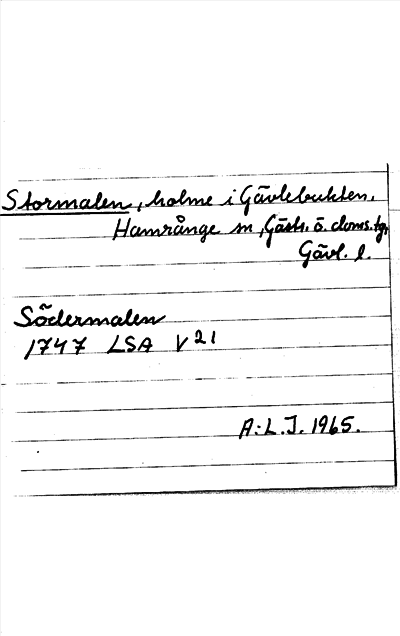 Stormalen, holme i Gävlebukten,
Hamrånge sn, Gästr. ö. doms.tg,
Gävl. l.
Södermalen
1747 LSA V 21
A:L.J. 1965.